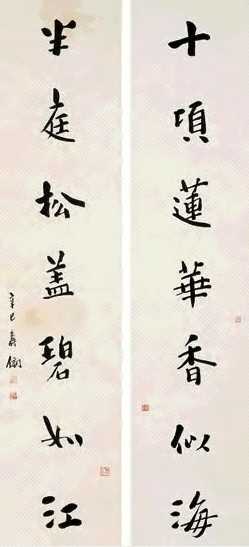 十項蓮華香似海
半庭松盖碧如江
辛巳